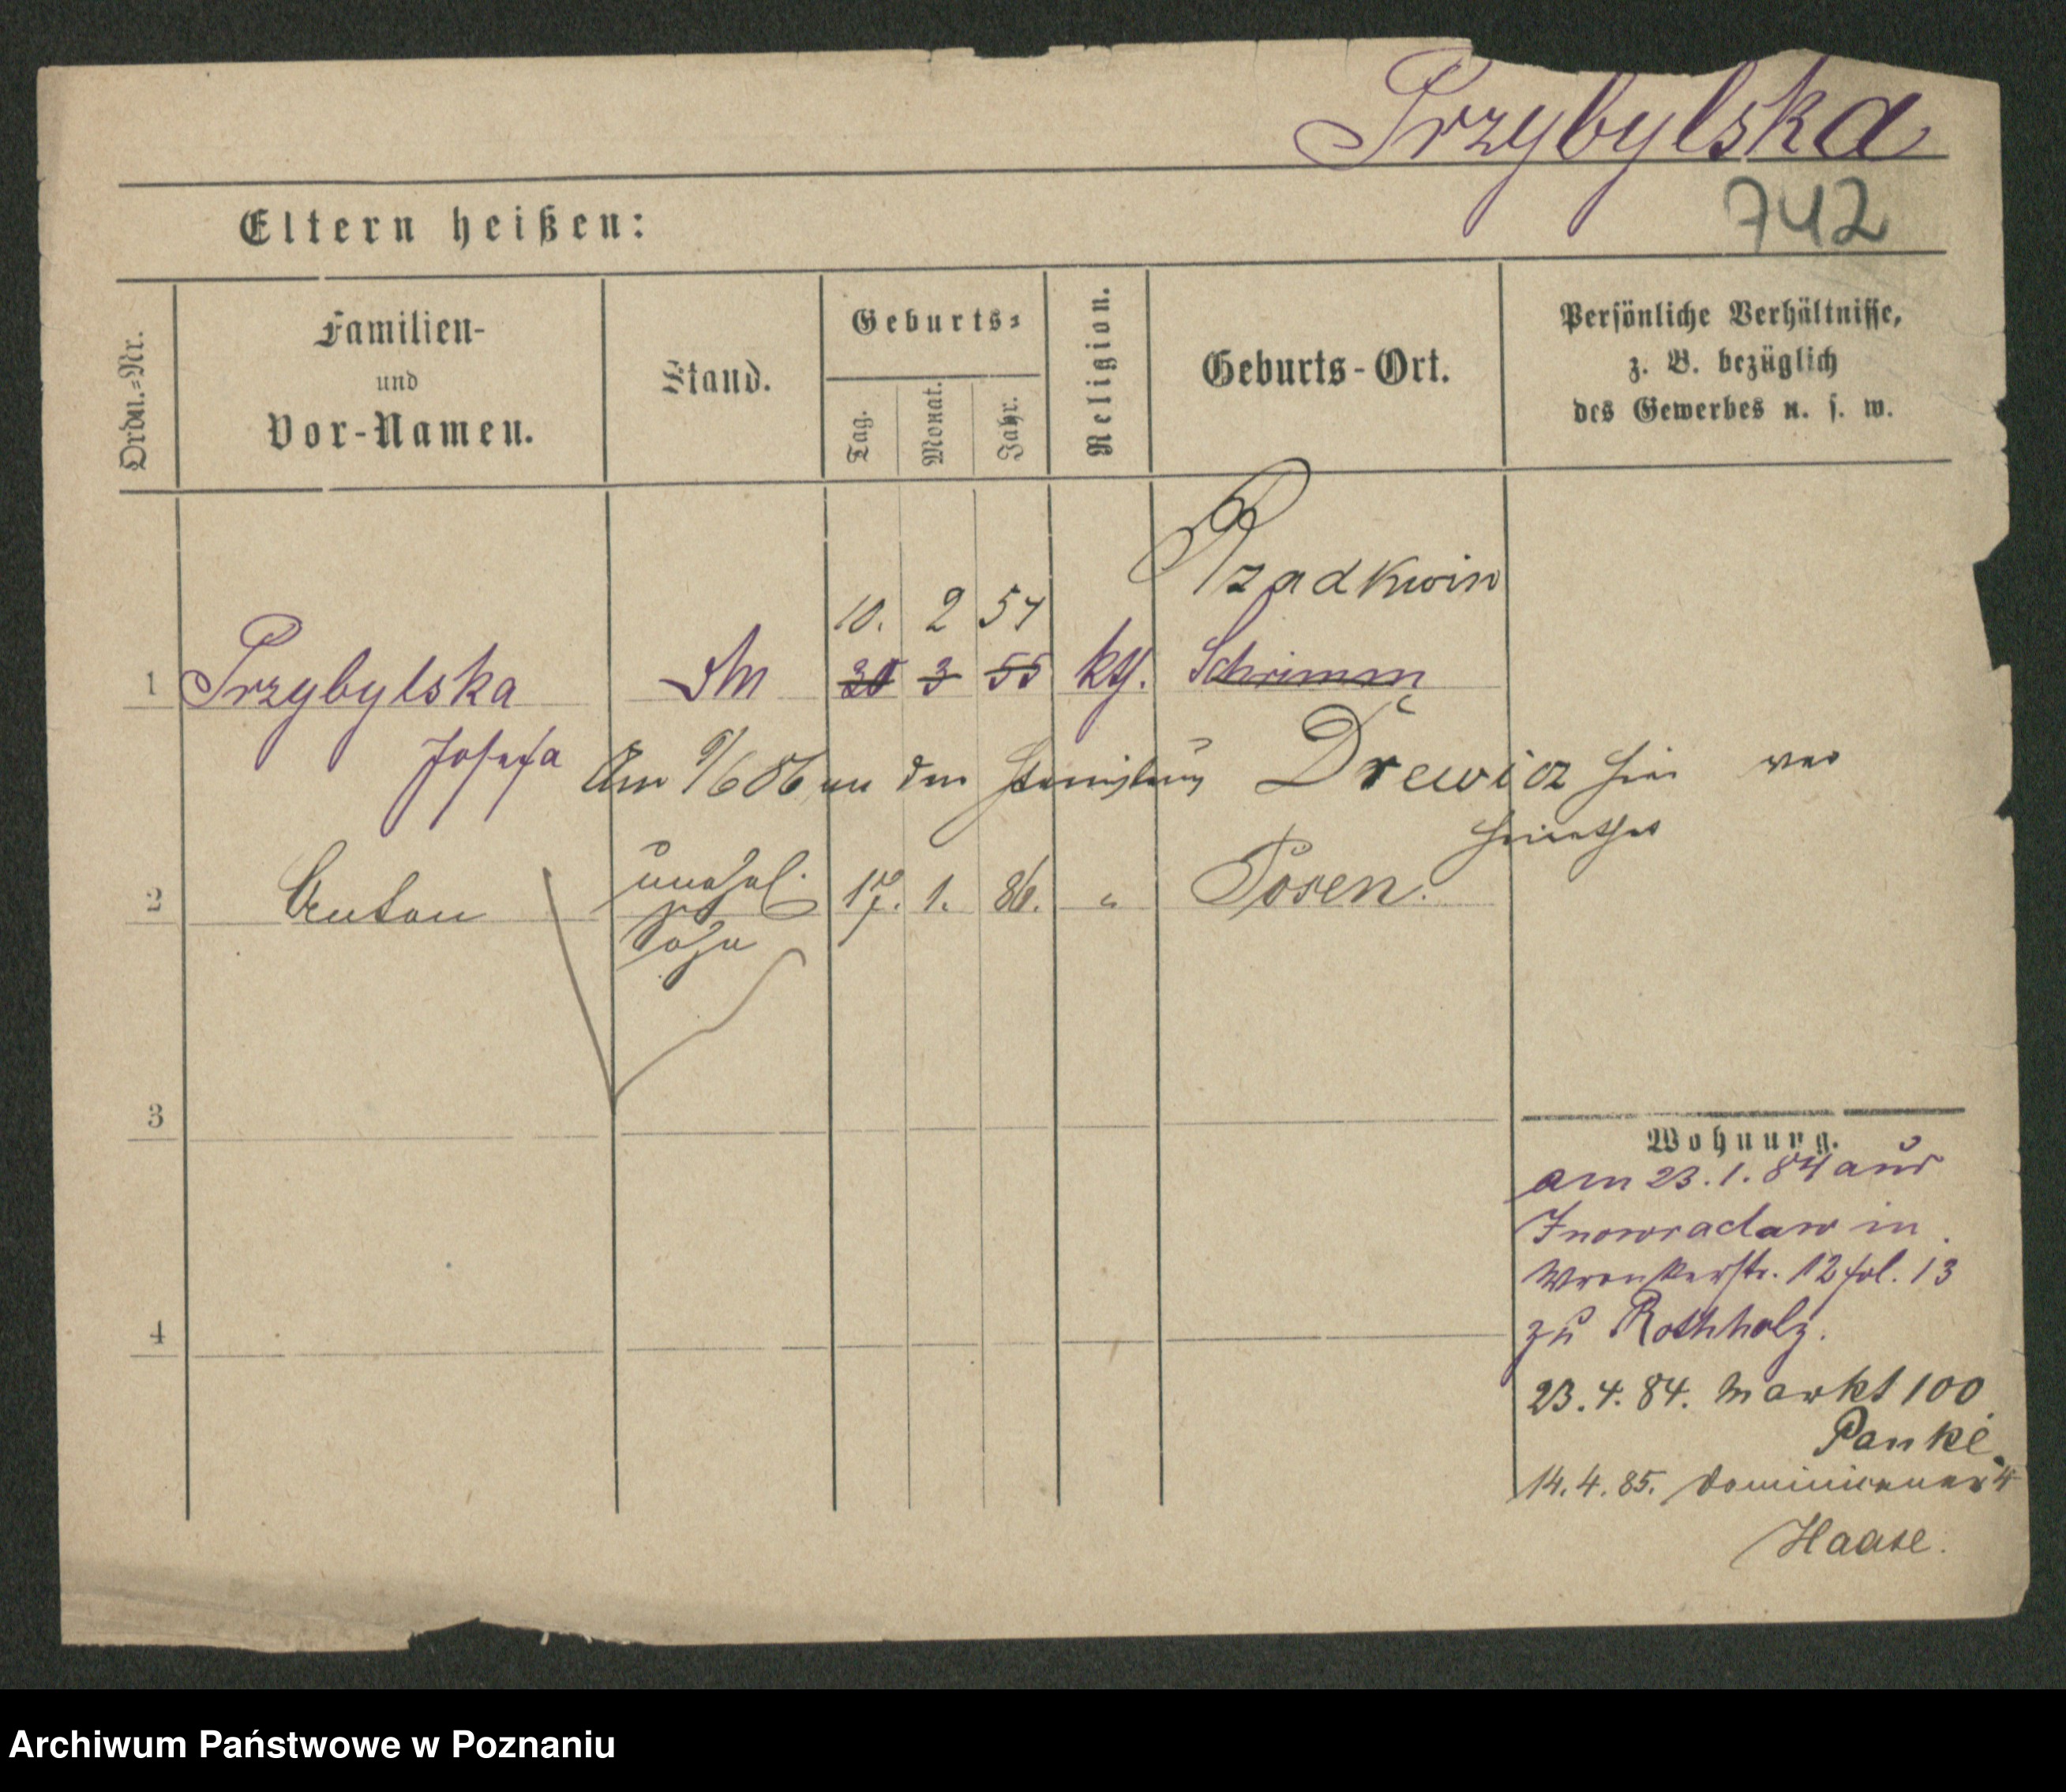 Przybylska
742
Eltern heißen:
Ordn.=Nr.
Familien-
und
Vor-Namen.
Stand.
Geburts=
Tag.
Monat.
Jahr.
Religion.
Geburts-Ort.
Persönliche Verhältnisse,
z. B. bezüglich
des Gewerbes u. s. w.
Rzadkwin
10. 2 54
1 Przybylska 30 3 55 kth. Schrimm
Josefa
Am 9/6 86 an den Stanislaus Drewicz hier ver
heirathet
2 Anton unehel. 17. 1. 86. " Posen.
Sohn
3
4
Wohnung.
am 23.1.84 aus
Inowraclaw in
Wronkerstr. 12 fol. 13
zu Rothholz.
23.4.84. Markt 100
Panke.
14.4.85. Dominicaner 4
Haase.
Archiwum Państwowe w Poznaniu